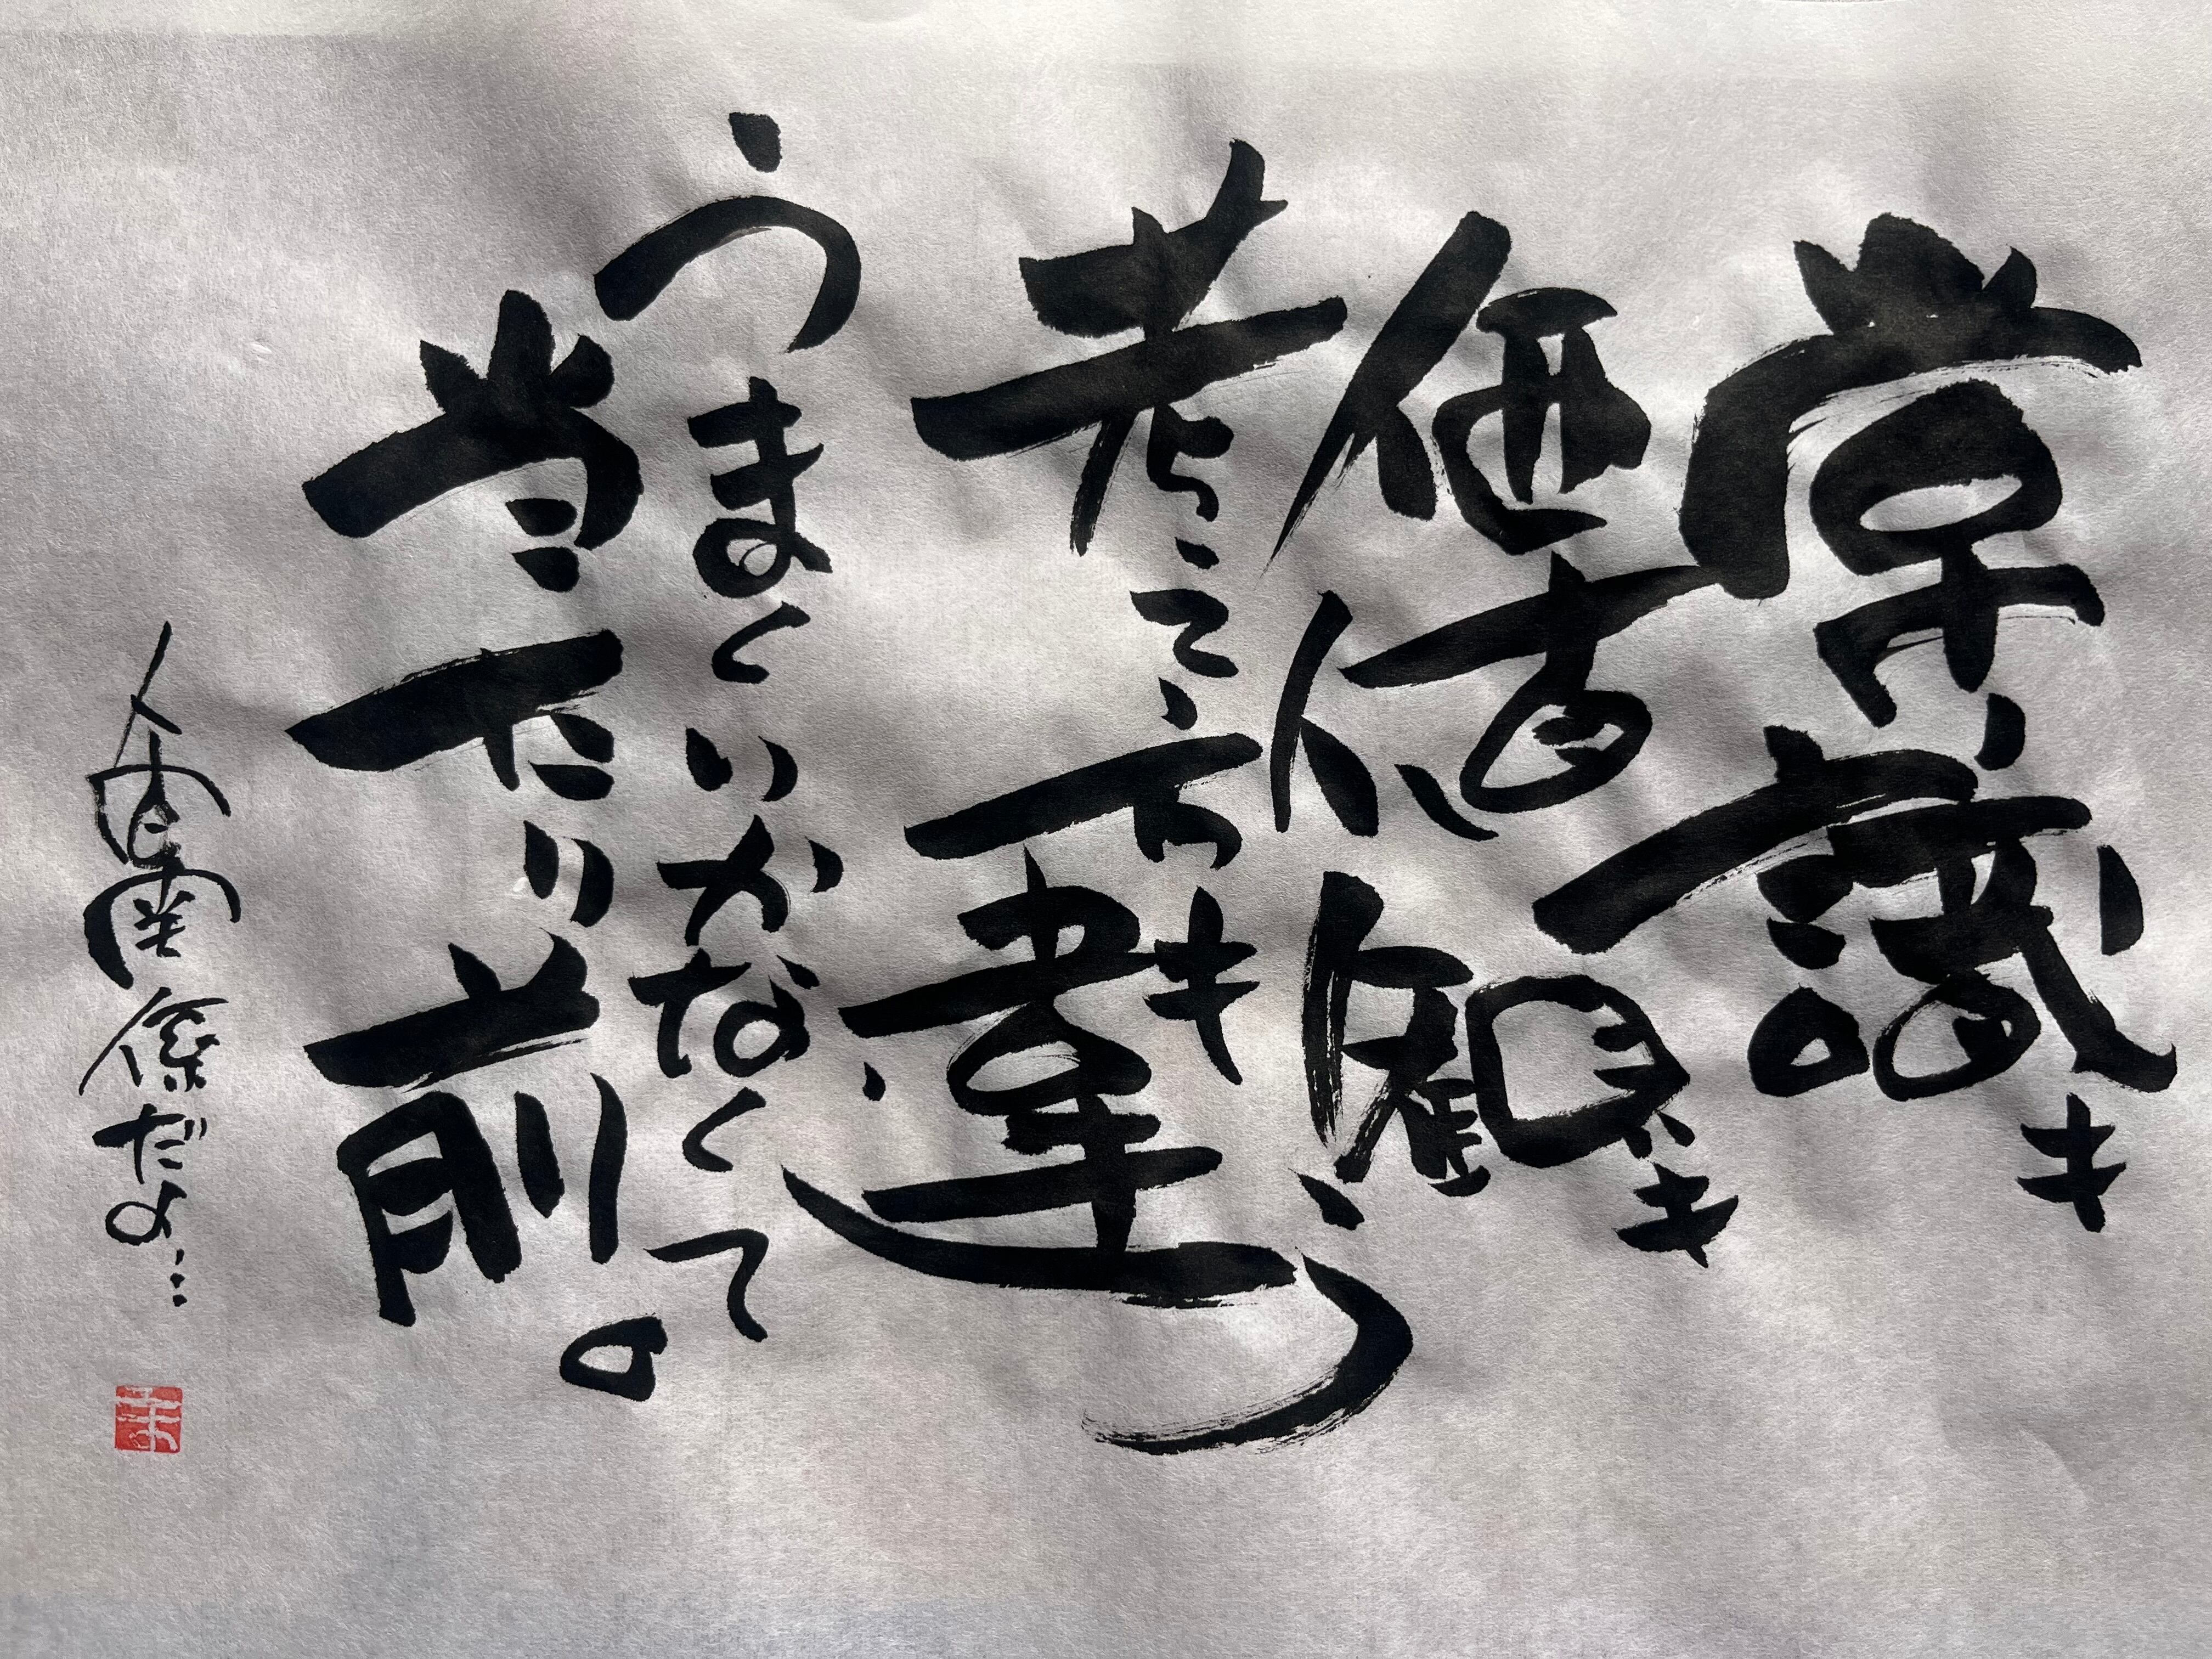 常識も
価値観も
考え方も違う
うまくいかなくて
当たり前。
人間関係だよ…